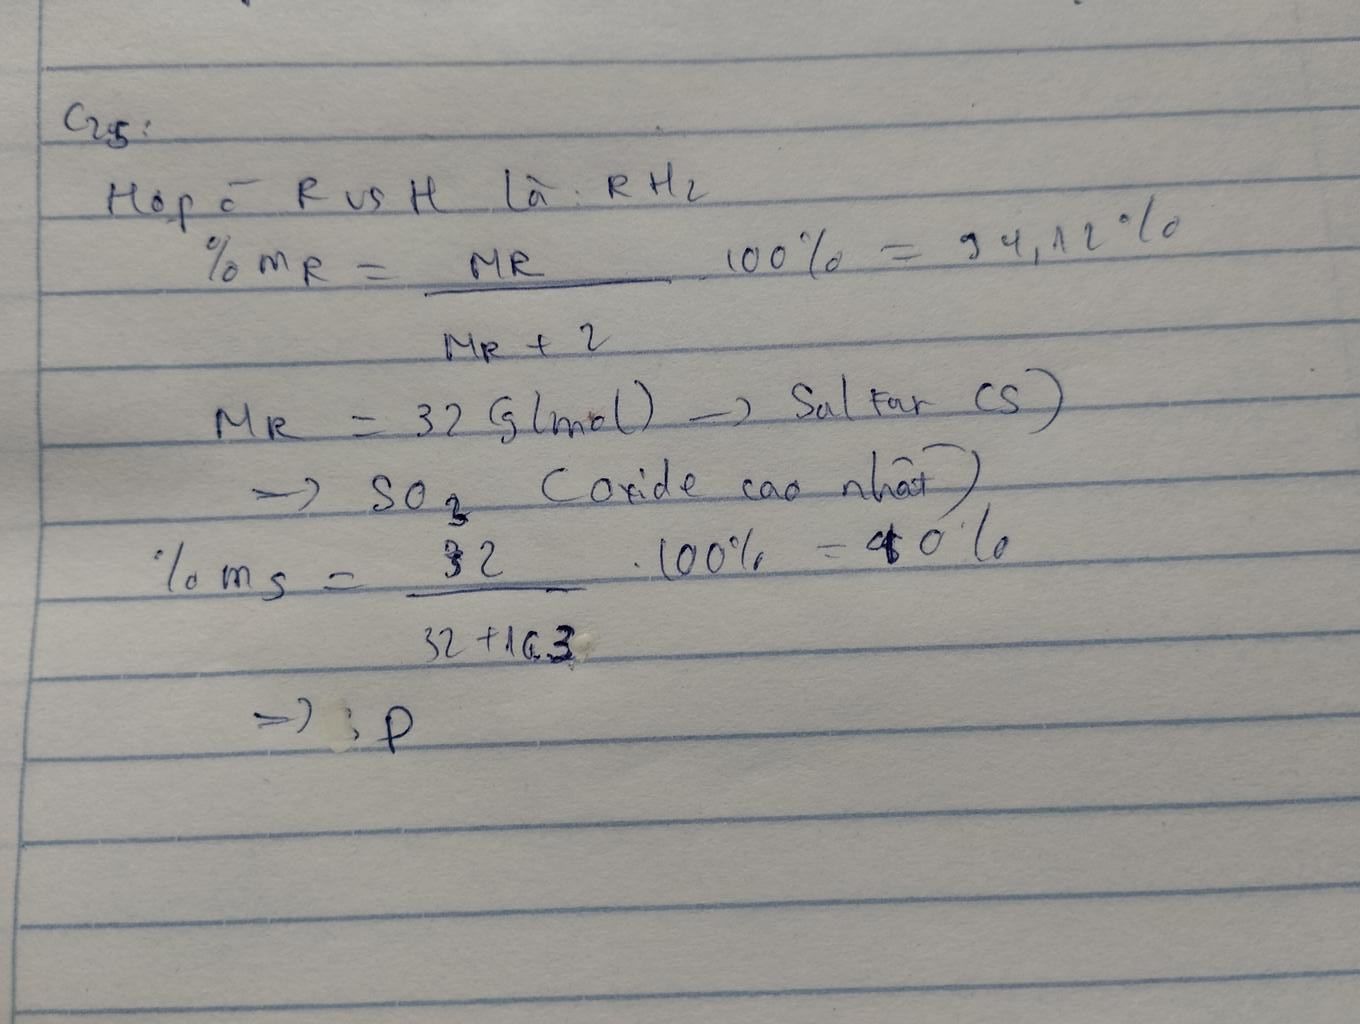 C25:
Hợp c R vs H là: RH2
%mR = MR / MR + 2 . 100% = 94,12%
MR = 32 (g/mol) → Sulfur (S)
=> SO3 (oxide cao nhất)
%ms = 32 / 32 + 16.3 . 100% = 40%
=> : D